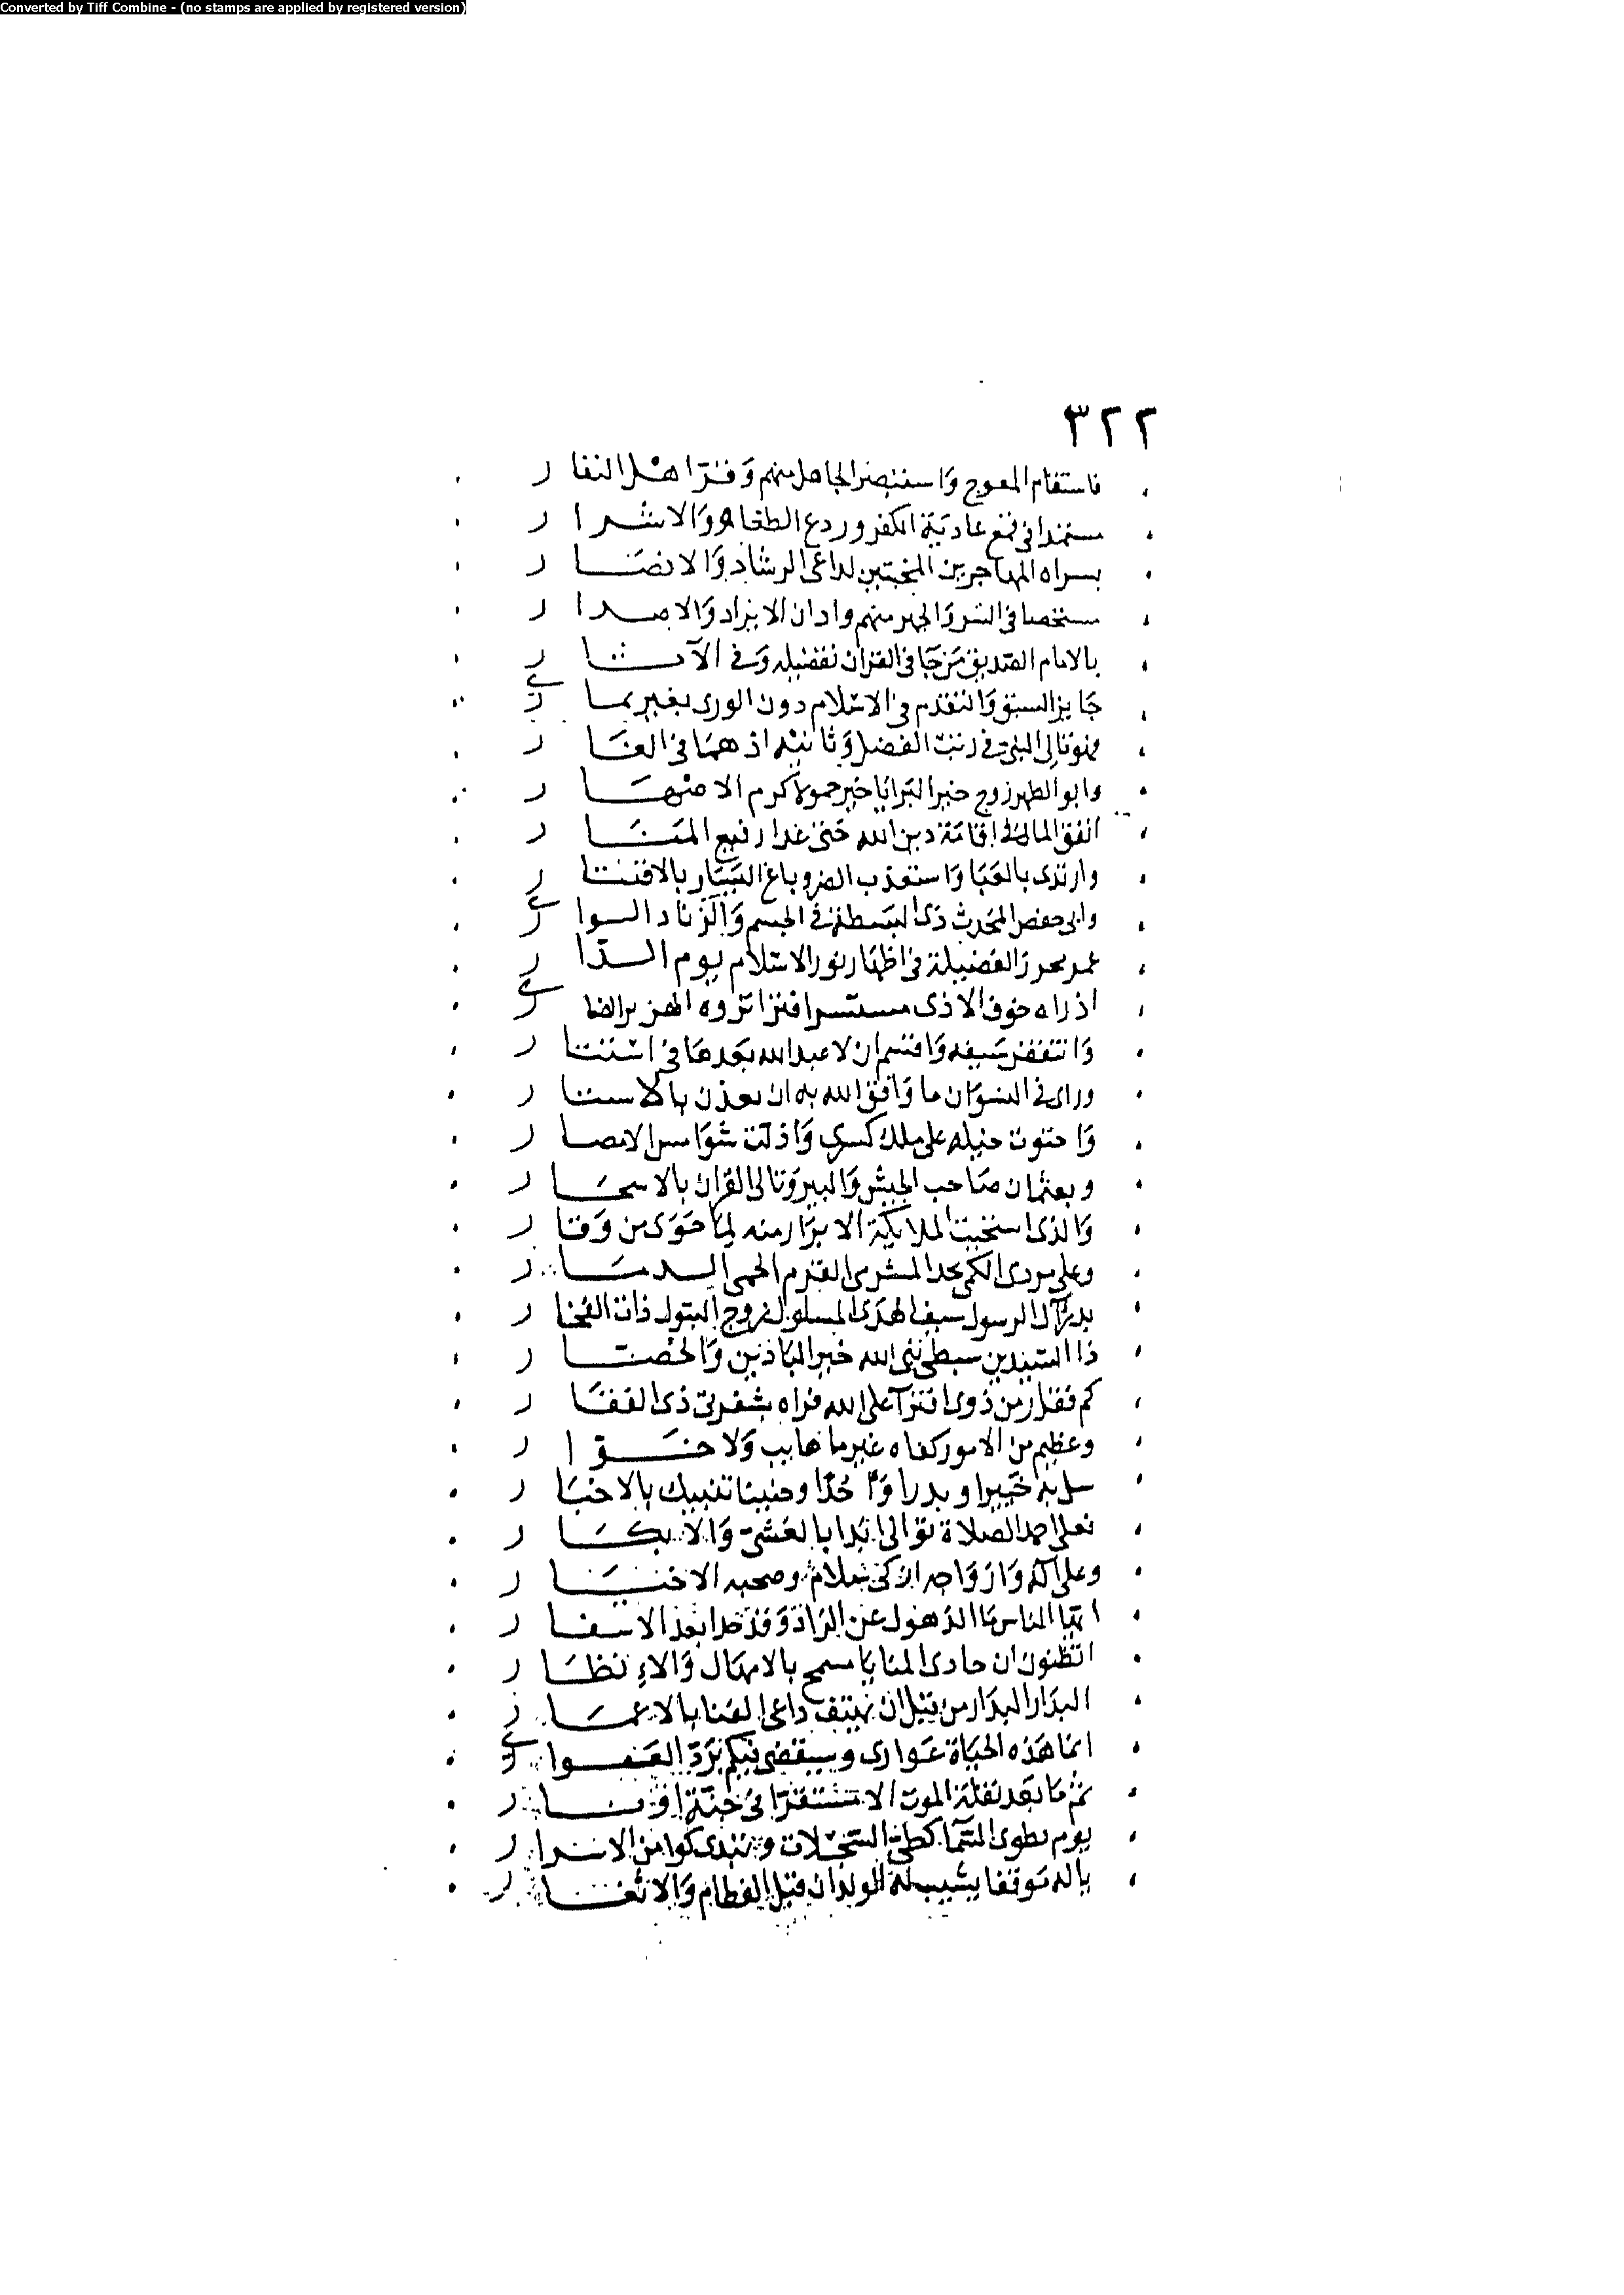 Converted by Tiff Combine - (no stamps are applied by registered version)
٣٢٢
فاستقام المعوج وَاستبصر الجاهل منهم وَقرّ اهل النفار
مستمدا في قمع عادية الكفر وردع الطغاه وَالاشرار
بسراه المهاجرين المخبتين لداعى الرشاد وَالانصَار
مستخصا في السر وَالجهر منهم وادان الايراد وَالاصدار
بالامام الصديق مَن جَا في القران تفضيله وَفي الآثار
حَايز السبق وَالتقدم في الاسْلام دون الورى بغير ممارى
فهو تالى النبى في رتب الفضل وَثانيه اذ همَا في الغَار
وابو الطهر زوج خير البَرايَا خير حمو لاكرم الاصْهَار
انفق المال في اقامَة دين الله حَتى غدا رفيع المنَار
وارتدى بالعَبَا وَاستعذب الضر وباع اليسَار بالاقتتار
وابى حفص المحدث ذى البسطة في الجسم وَالزناد الوارى
عمر محرز الفضيلة في اظهَار نور الاسْلام يوم الدّار
اذ راه خوف الاذى مستسرا فنزا نزوه الهزبر الضارى
وَانتضى سَيفه وَاقسم ان لا عبد الله بَعدهَا في استتار
وراى في النسوَان ما وَافق الله به ان يعذن بالاستار
وَاحتوت خيله على ملك كسرى وَاذلت شوَامس الامصار
وبعثمان صَاحب الجيش وَالبير وَتالى القرآن بالاسحَار
وَالذى استحيت الملايكَة الابرَار منه لِمَا حَوَى من وَقار
وعلى مردى الكمى بحد المشرفى القرم الحمى الدمَار
بدر آل الرسول سيف الهدَى المسلول زوج البتول ذات الفخار
ذا السيدين سبطى نبى الله خير البَاذين وَالحُضّار
كم فقار من ذوى افترآ على الله فراه بشفرتى ذى الفقَار
وعظيم من الامور كفاه غير ما هايب وَلا خوّار
سل به خَيبرا وبدرا وَاُحُدًا وحنينا تنبيك بالاخبَار
فعلى احمد الصلاة توَالى ابَدا بالعَشىّ وَالابكَار
وعلى اله وَازوَاجه ازكى سَلام وصحبه الاخيَار
ايهَا الناس مَا الذهول عن الزاد وَقد حَدا بعد الاسفار
اتظنون ان حادى المنايَا مسمح بالامهَال وَالاِنظَار
البدَار البدَار من قبل ان يهتف داعى الفنا بالاعمَار
انمَا هَذه الحيَاة عَوارى وسيقضى فيكم بَردّ العَوارى
ثم مَا بَعد نقلة الموت الا مستقرّا في جَنّة او نار
يوم تطوى السّمآ كطىّ السّجلات وتبدى كوامن الاسرار
يا له مَوقفا يشيب له الولدَان قبل الفطام وَالاثغَار